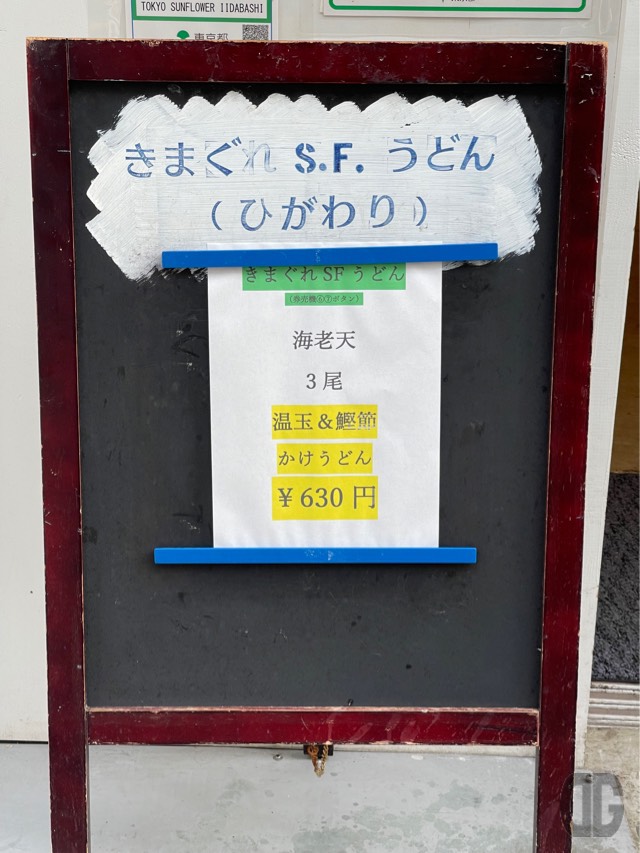 TOKYO SUNFLOWER IIDABASHI
東京都
きまぐれ S.F. うどん
(ひがわり)
きまぐれ SF うどん
(券売機⑥⑦ボタン)
海老天
3尾
温玉&鰹節
かけうどん
¥630円
DG